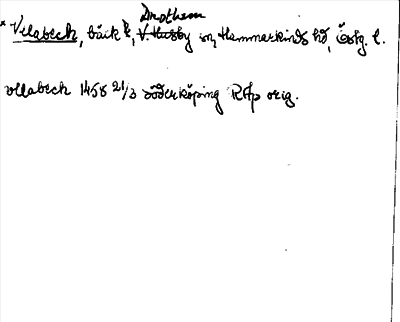 Drothem
* Vllabeck, bäck i, V. Husby sn, Hammarkinds hd, Östg. l.
vllabeck 1458 21/3 Söderköping RAp orig.